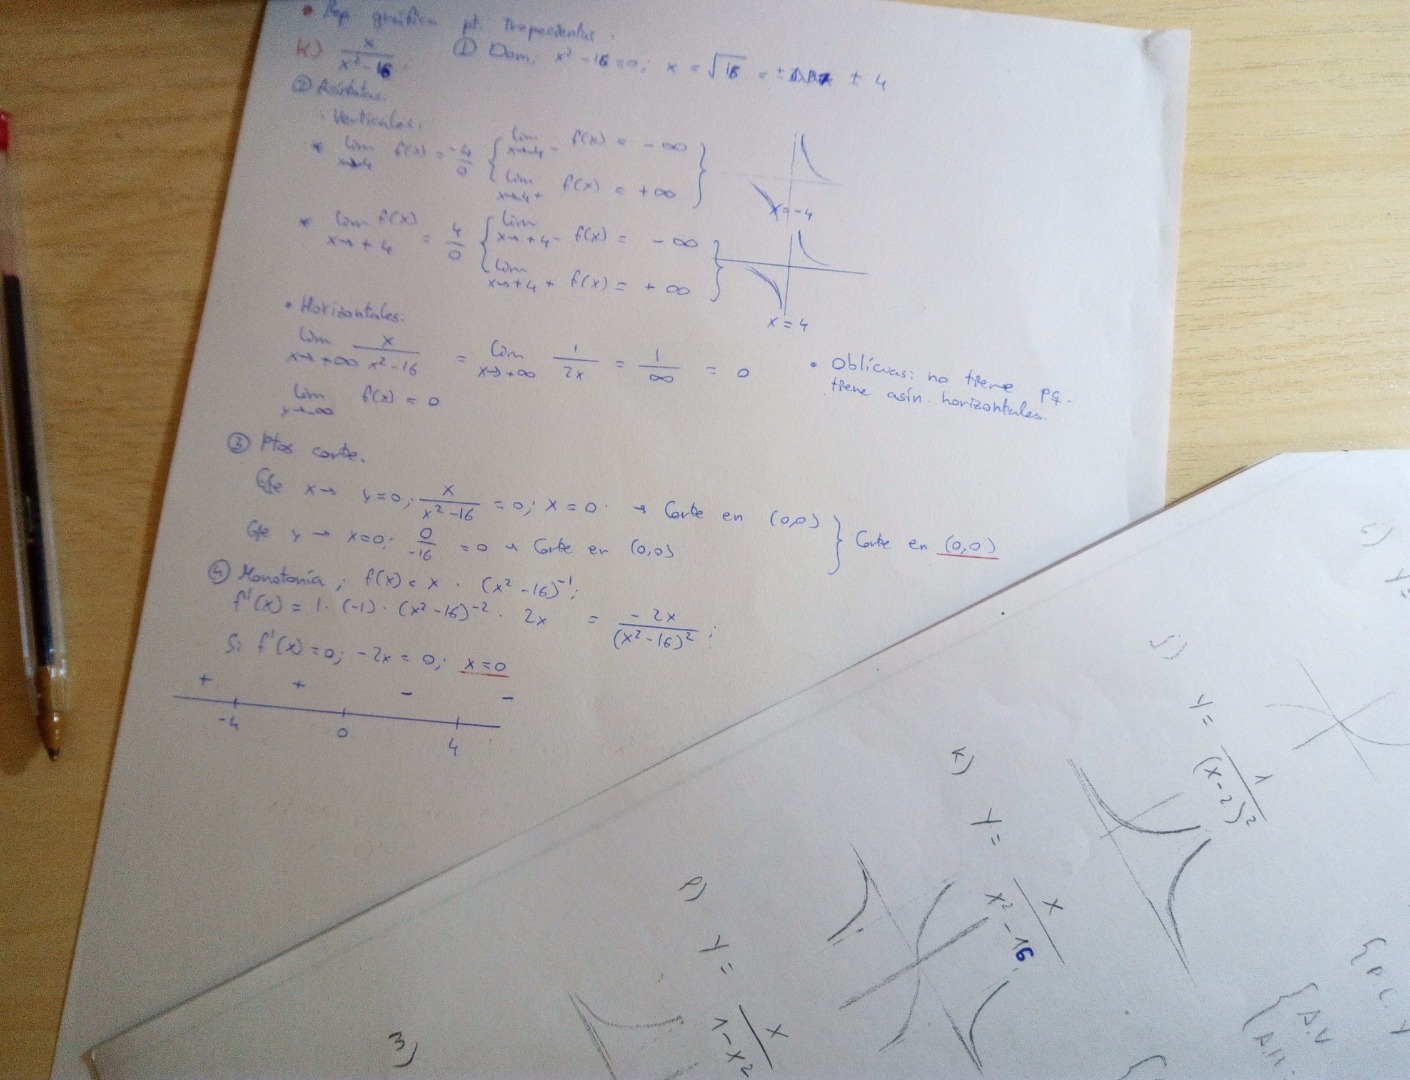 • Rep gráfica pt. Trapecientos.
k) x/(x²-16); ① Dom: x²-16=0; x = √16 = ± 4
② Asíntotas:
· Verticales:
* lim x→-4 f(x) = -4/0 { lim x→-4⁻ f(x) = -∞
lim x→-4⁺ f(x) = +∞ }
x=-4
* lim x→+4 f(x) = 4/0 { lim x→+4⁻ f(x) = -∞
lim x→+4⁺ f(x) = +∞ }
x=4
• Horizontales:
lim x→+∞ x/(x²-16) = lim x→+∞ 1/2x = 1/∞ = 0
lim x→-∞ f(x) = 0
• Oblícuas: no tiene pq.
tiene asín. horizontales.
③ Ptos corte.
Eje x → y=0; x/(x²-16) = 0; x=0 → Corte en (0,0)
Eje y → x=0; 0/-16 = 0 → Corte en (0,0) } Corte en (0,0)
④ Monotonía; f(x) = x · (x²-16)⁻¹;
f'(x) = 1·(-1)·(x²-16)⁻²· 2x = -2x/(x²-16)²;
Si f'(x)=0; -2x=0; x=0
+ + - -
-4 0 4
j) y = 1/(x-2)²
k) y = x/(x²-16)
y = x/(1-x²)
3)
{A.V